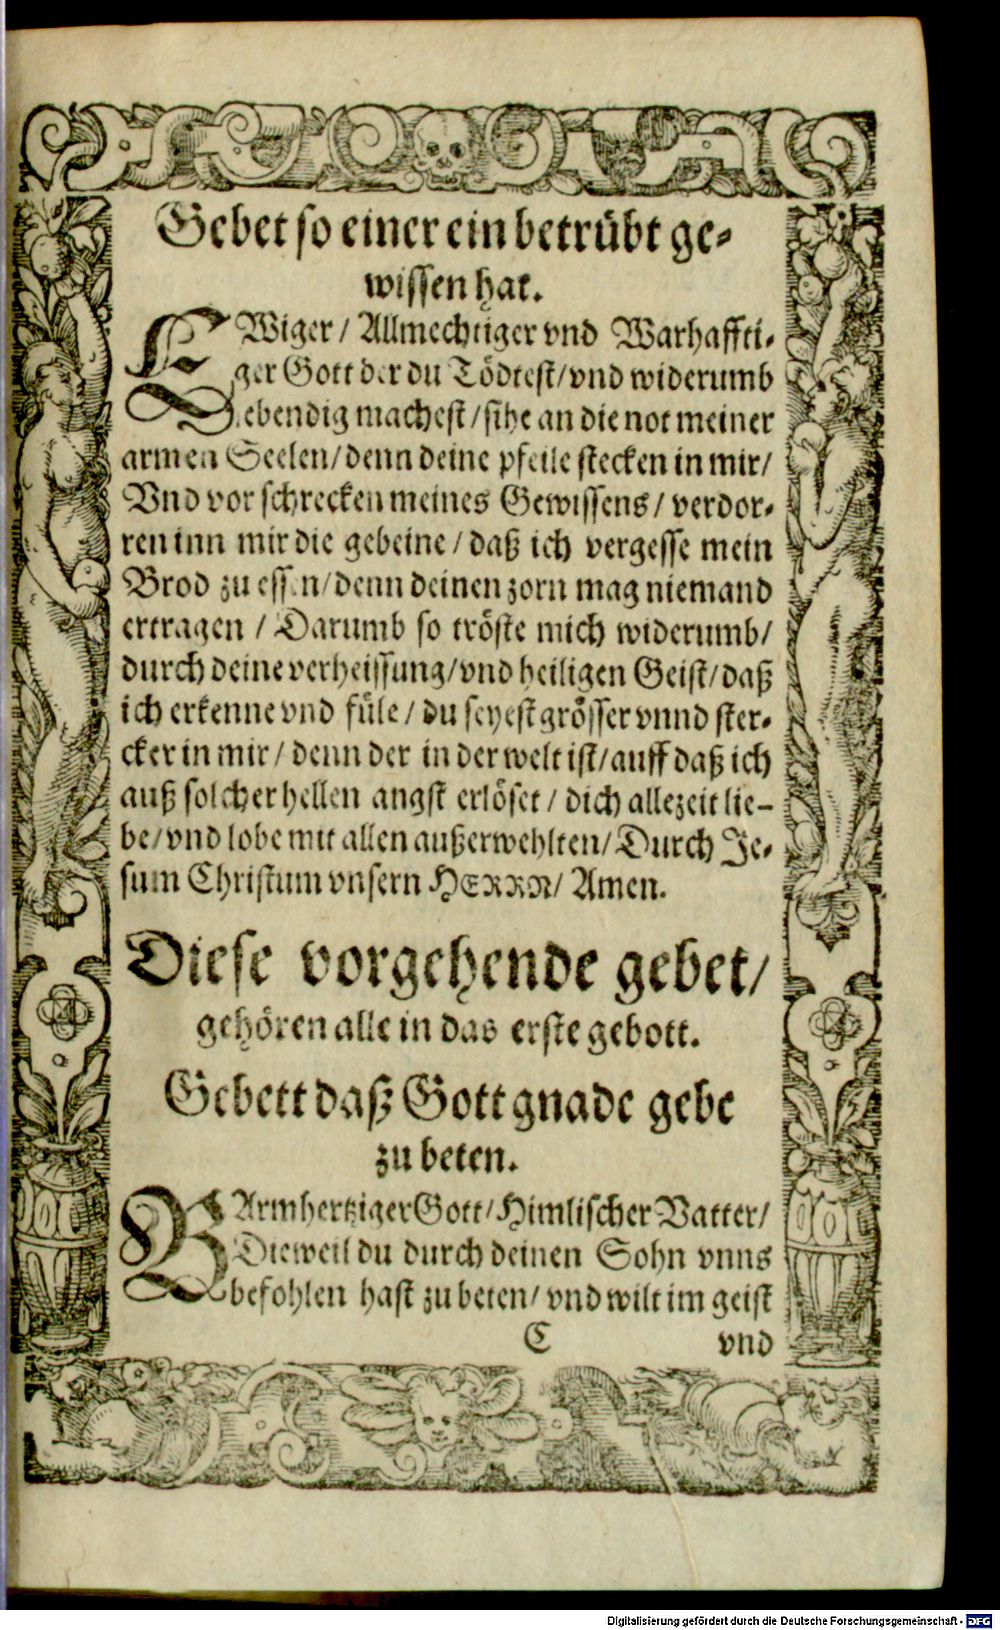 Gebet so einer ein betrübt ge-
wissen hat.
EWiger / Allmechtiger vnd Warhaffti-
ger Gott der du Tödtest / vnd widerumb
Lebendig machest / sihe an die not meiner
armen Seelen / denn deine pfeile stecken in mir /
Vnd vor schrecken meines Gewissens / verdor-
ren inn mir die gebeine / daß ich vergesse mein
Brod zu essen / denn deinen zorn mag niemand
ertragen / Darumb so tröste mich widerumb /
durch deine verheissung / vnd heiligen Geist / daß
ich erkenne vnd füle / du seyest grösser vnnd ster-
cker in mir / denn der in der welt ist / auff daß ich
auß solcher hellen angst erlöset / dich allezeit lie-
be / vnd lobe mit allen außerwehlten / Durch Je-
sum Christum vnsern HERRN / Amen.
Diese vorgehende gebet /
gehören alle in das erste gebott.
Gebett daß Gott gnade gebe
zu beten.
BArmhertziger Gott / Himlischer Vatter /
Dieweil du durch deinen Sohn vnns
befohlen hast zu beten / vnd wilt im geist
C vnd
Digitalisierung gefördert durch die Deutsche Forschungsgemeinschaft - DFG